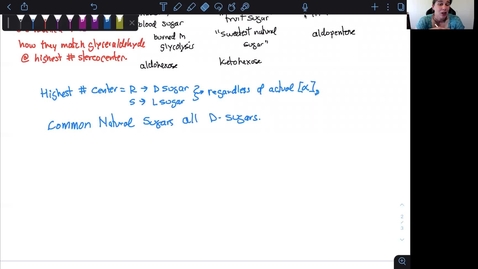 blood sugar
"fruit sugar
how they match glyceraldehyde
burned in
"sweetest natural
aldopentose
@ highest # stereocenter.
glycolysis
sugar"
aldohexose
ketohexose
Highest # center = R → D sugar
regardless of actual [α]D
S → L sugar
Common Natural Sugars all D-sugars.